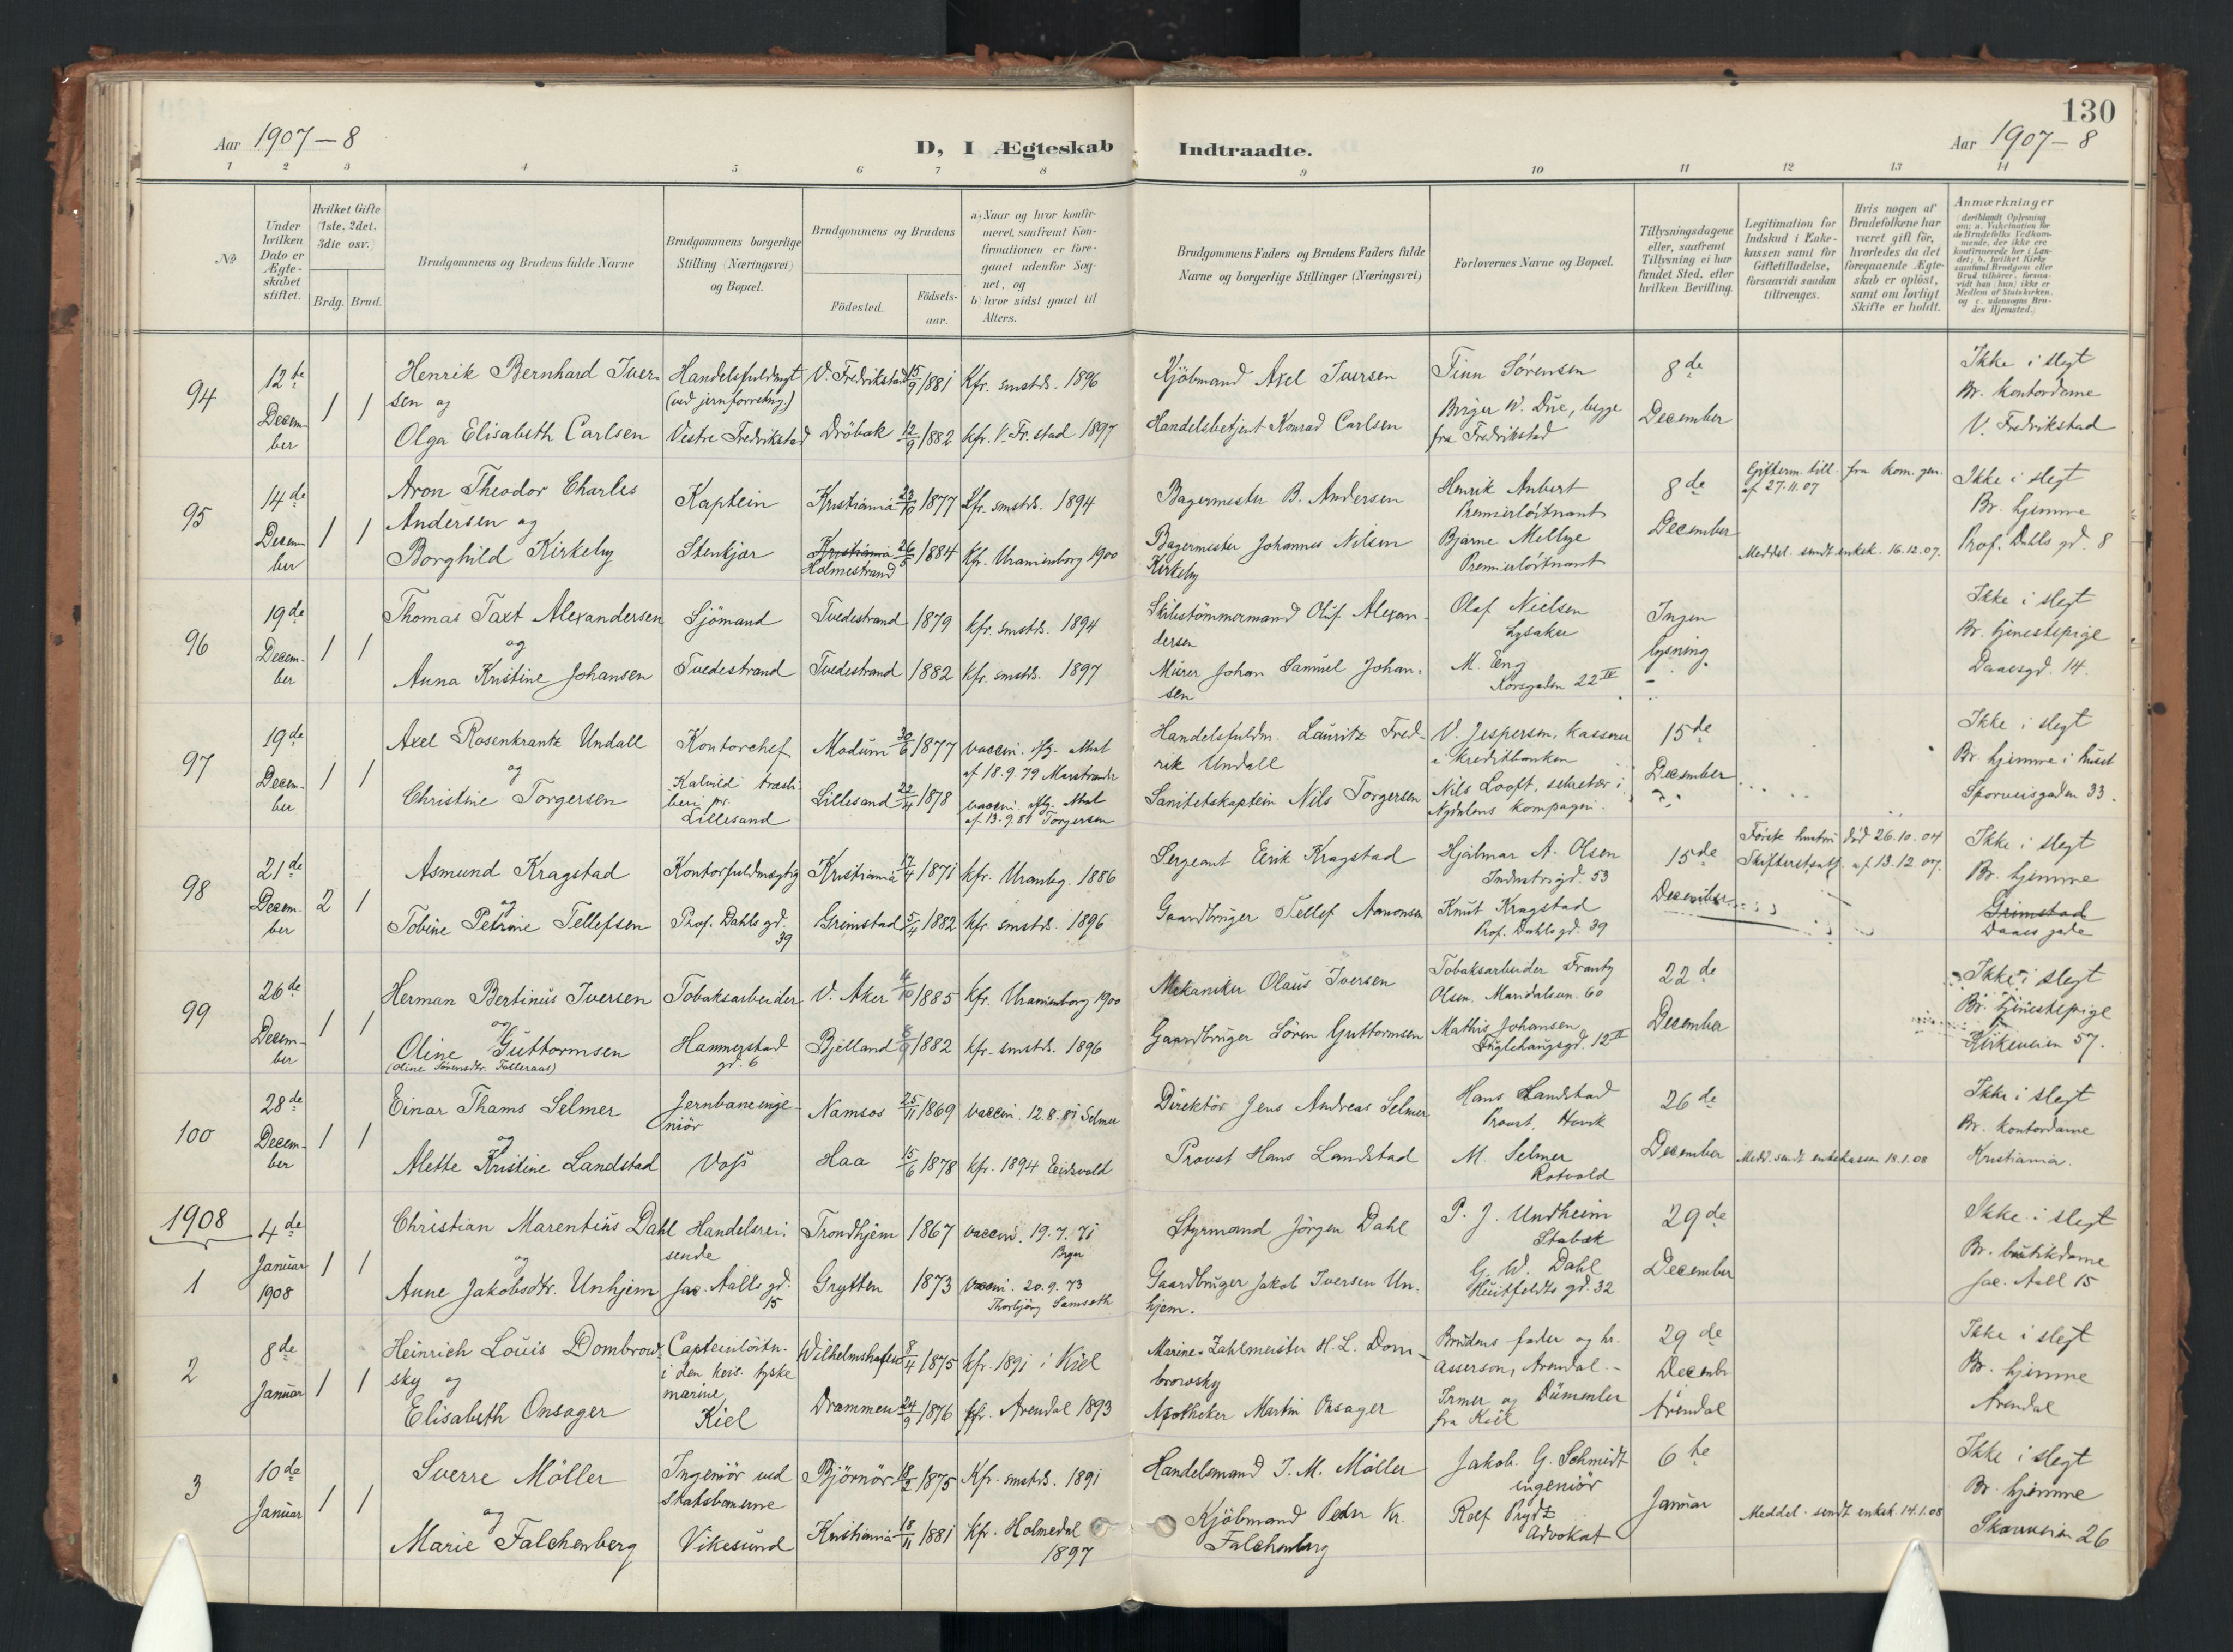 130
Aar 1907-8
D, I Ægteskab Indtraadte.
Aar 1907-8
1 2 3 4 5 6 7 8 9 10 11 12 13 14
№
Under hvilken Dato er Ægteskabet stiftet.
Hvilket Gifte (1ste, 2det, 3die osv.)
Brdg. Brud.
Brudgommens og Brudens fulde Navne
Brudgommens borgerlige Stilling (Næringsvei) og Bopæl.
Brudgommens og Brudens
Födested.
Födsels-aar.
a) Naar og hvor konfirmeret, saafremt Konfirmationen er foregaaet udenfor Sognet, og
b) hvor sidst gaaet til Alters.
Brudgommens Faders og Brudens Faders fulde Navne og borgerlige Stillinger (Næringsvei)
Forlovernes Navne og Bopæl.
Tillysningsdagene eller, saafremt Tillysning ei har fundet Sted, efter hvilken Bevilling.
Legitimation for Indskud i Enkekassen samt for Giftetilladelse, forsaavidt saadan tiltrænges.
Hvis nogen af Brudefolkene har været gift för, hvorledes da det foregaaende Ægteskab er oplöst, samt om lovligt Skifte er holdt.
Anmærkninger
94
12te
Decem-
ber
1 1
Henrik Bernhard Iver-
sen og
Olga Elisabeth Carlsen
Handelsfuldmgt
(ved jernforretng.)
Vestre Fredrikstad
V. Fredrikstad 15/9 1881
Dröbak 12/9 1882
Kfr. smstds. 1896
kfr. V. Fr.stad 1897
Kjöbmand Axel Iversen
Handelsbetjent Konrad Carlsen
Finn Sörensen
Birger W. Due, begge
fra Fredrikstad
8de
December
Ikke i slegt
Br. kontordame
V. Fredrikstad
95
14de
Decem-
ber
1 1
Aron Theodor Charles
Andersen og
Borghild Kirkeby
Kaptein
Stenkjær
Kristiania 23/10 1877
Kristiania
Holmestrand 26/5 1884
Kfr. smstds. 1894
Kfr. Uranienborg 1900
Bagermester B. Andersen
Bagermester Johannes Nilsen
Kirkeby
Henrik Aubert
Premierlöitnant
Bjarne Mellbye
Premierlöitnant
8de
December
Gifterm. till. fra kom. gen.
af 27.11.07
Meddel. sendt enkek. 16.12.07.
Ikke i slegt
Br. hjemme
Prof. Dahls gd. 8
96
19de
Decem-
ber
1 1
Thomas Taxt Alexandersen
og
Anna Kristine Johansen
Sjömand
Tvedestrand
Tvedestrand 1879
Tvedestrand 1882
kfr. smstds. 1894
kfr. smstds. 1897
Skibstömmermand Oluf Alexan-
dersen
Murer Johan Samuel Johan-
sen
Olaf Nielsen
Lysaker
M. Eng
Korsgaden 22 IV
Ingen
lysning.
Ikke i slegt
Br. tjenestepige
Daaesgd. 14.
97
19de
Decem-
ber
1 1
Axel Rosenkrantz Undall
og
Christine Torgersen
Kontorchef
Kalvild træsli-
beri pr.
Lillesand
Modum 30/6 1877
Lillesand 22/4 1878
vaccin. ifg. Attest
af 18.9.79 Marstrander
vaccin. ifg. Attest
af 13.9.81 Torgersen
Handelsfuldm. Lauritz Fred-
rik Undall
Sanitetskaptein Nils Torgersen
V. Jespersen, kasserer
i Kreditbanken
Nils Looft, sekretær i
Nydalens Kompagni.
15de
December
Ikke i slegt
Br. hjemme i huset
Sporveisgaden 33.
98
21de
Decem-
ber
2 1
Asmund Kragstad
og
Tobine Petrine Tellefsen
Kontorfuldmægtig
Prof. Dahls gd.
39
Kristiania 17/4 1871
Grimstad 5/4 1882
kfr. Uranbg. 1886
kfr. smstds. 1896
Sergeant Eirik Kragstad
Gaardbruger Tellef Aanonsen
Hjalmar A. Olsen
Industrigd. 53
Knut Kragstad
Prof. Dahls gd. 39
15de
December
Förste hustru död 26.10.04
Skifteretsatt. af 13.12.07.
Ikke i slegt
Br. hjemme
Grimstad
Daaes gade
99
26de
Decem-
ber
1 1
Herman Bertinus Iversen
og
Oline Guttormsen
(Oline Sörensdtr. Tolleraas)
Tobaksarbeider
Hammerstad
gd. 6
V. Aker 4/10 1885
Bjelland 8/9 1882
kfr. Uranienborg 1900
kfr. smstds. 1896
Mekaniker Olaus Iversen
Gaardbruger Sören Guttormsen
Tobaksarbeider Frantz
Olsen, Maridalsvn. 60
Mathis Johansen
Fuglehaugsgd. 12 II
22de
December
Ikke i slegt
Br. tjenestepige
Kirkeveien 57.
100
28de
Decem-
ber
1 1
Einar Thams Selmer
og
Alette Kristine Landstad
Jernbaneinge-
niör
Voss
Namsos 25/11 1869
Haa 15/6 1878
vaccin. 12.8.81 Selmer
kfr. 1894 Eidsvold
Direktör Jens Andreas Selmer
Provst Hans Landstad
Hans Landstad
Provst. Hovik
M. Selmer
Rotvold
26de
December
Medd. sendt enkekassen 18.1.08
Ikke i slegt
Br. kontordame
Kristiania.
1908
1
4de
Januar
1908
1 1
Christian Marentius Dahl
og
Anne Jakobsdtr. Unhjem
Handelsrei-
sende
Jac. Aalls gd.
15
Trondhjem 1867
Grytten 1873
vaccin. 19.7.71
vaccin. 20.9.73
Thorbjörg Samseth
Styrmand Jörgen Dahl
Gaardbruger Jakob Iversen Un-
hjem.
P. J. Undheim
Stabæk
G. W. Dahl
Huitfeldts gd. 32
29de
December
Ikke i slegt
Br. butikdame
Jac. Aall 15
2
8de
Januar
1 1
Heinrich Louis Dombrow-
sky og
Elisabeth Onsager
Capteinlöitn.
i den keis. tyske
marine,
Kiel
Wilhelmshafen 8/4 1875
Drammen 24/9 1876
kfr. 1891 i Kiel
kfr. Arendal 1893
Marine-Zahlmeister H. L. Dom-
browsky
Apotheker Martin Onsager
Brudens fader og hr.
Asserson, Arendal.-
Irmer og Dümmler
fra Kiel
29de
Decembr
Arendal
Ikke i slegt
Br. hjemme
Arendal
3
10de
Januar
1 1
Sverre Möller
og
Marie Falchenberg
Ingeniör ved
Statsbanerne
Vikesund
Björnör 18/2 1875
Kristiania 18/11 1881
Kfr. smstds. 1891
Kfr. Holmedal
1897
Handelsmand J. M. Möller
Kjöbmand Peder Kr.
Falchenberg
Jakob. G. Schmidt
ingeniör
Rolf Prydz
Advokat
6te
Januar
Meddel. sendt enkek. 14.1.08
Ikke i slegt
Br. hjemme
Skovveien 26